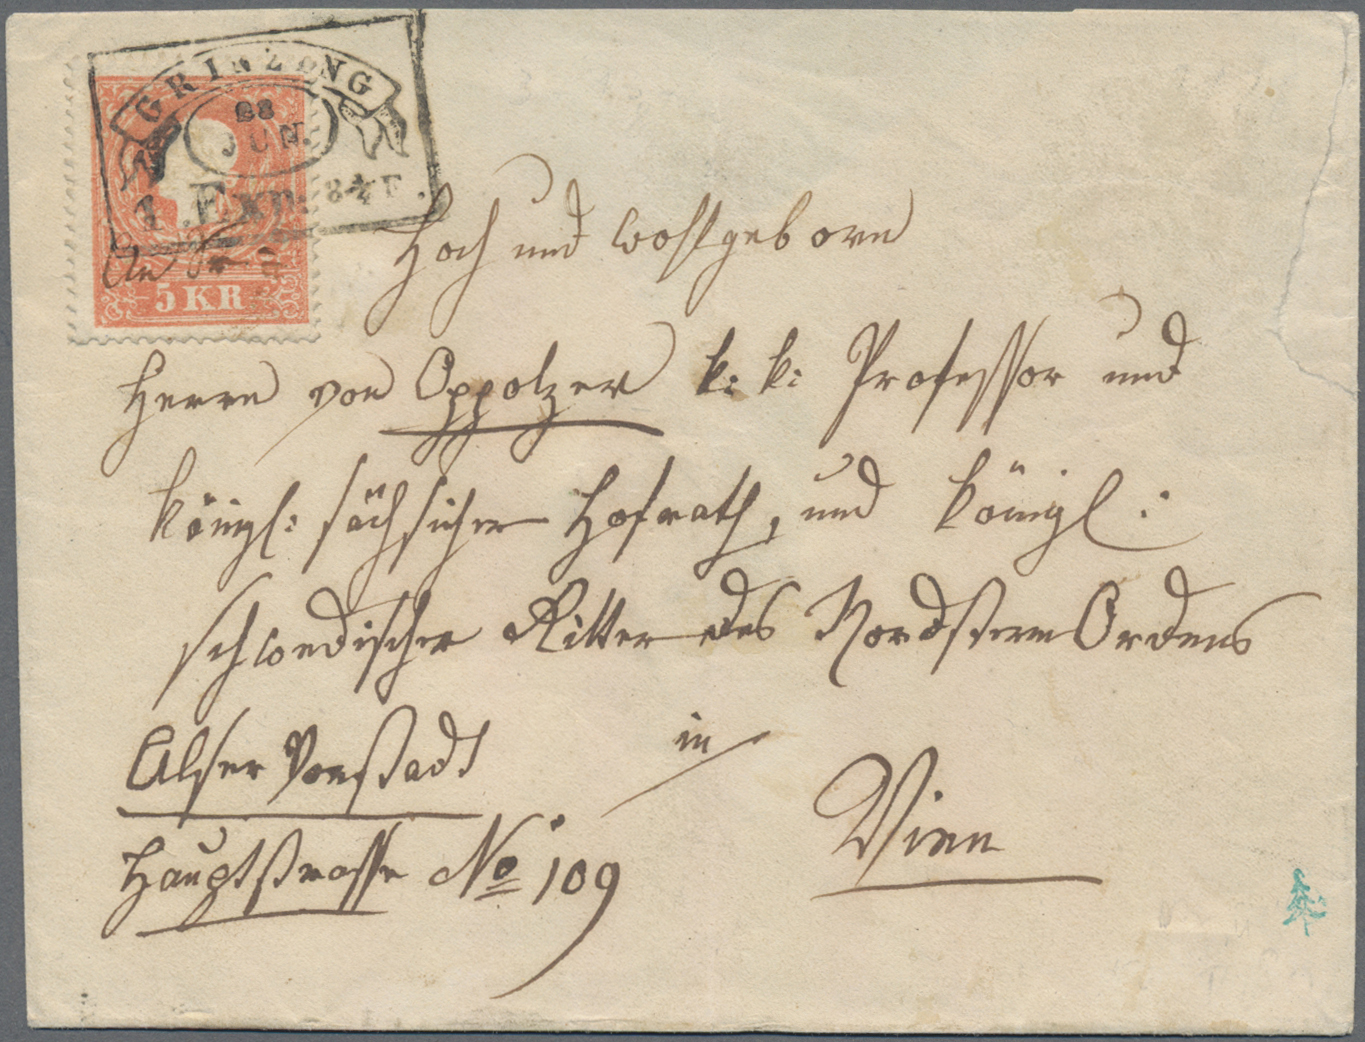 GRINZING
28
JUN.
1. EXP. 8 3/4 F.
An Sr
5 KR
Hoch und Wohlgeborn
Herrn von Oppolzer k: k: Professor und
königl: sächsischer Hofrath, und königl:
schwedischer Ritter des Nordstern Ordens
Alser Vorstadt in
Hauptstrasse No 109 Wien